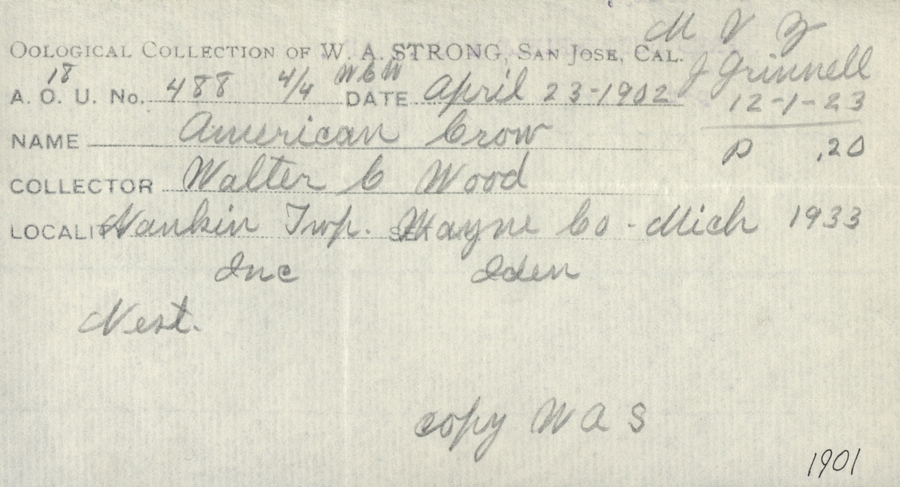 M V Z
OOLOGICAL COLLECTION OF W. A. STRONG, SAN JOSE, CAL.
J Grinnell
18
A. O. U. No. 488 4/4 WCW DATE April 23-1902
12-1-23
NAME American Crow
P .20
COLLECTOR Walter C Wood
LOCALITY Nankin Twp. Wayne Co - Mich 1933
Inc Iden
Nest.
copy W A S
1901